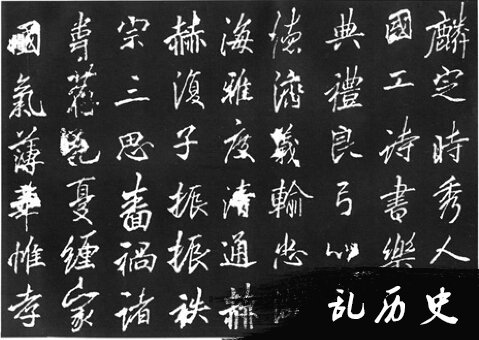 麟定時秀人
國工诗書樂
典禮良弓
濟義輸忠
海雅度清通赫
赫復子振振袟
宗三思番禍諸
憂纏家
國氣薄華惟孝
乱历史